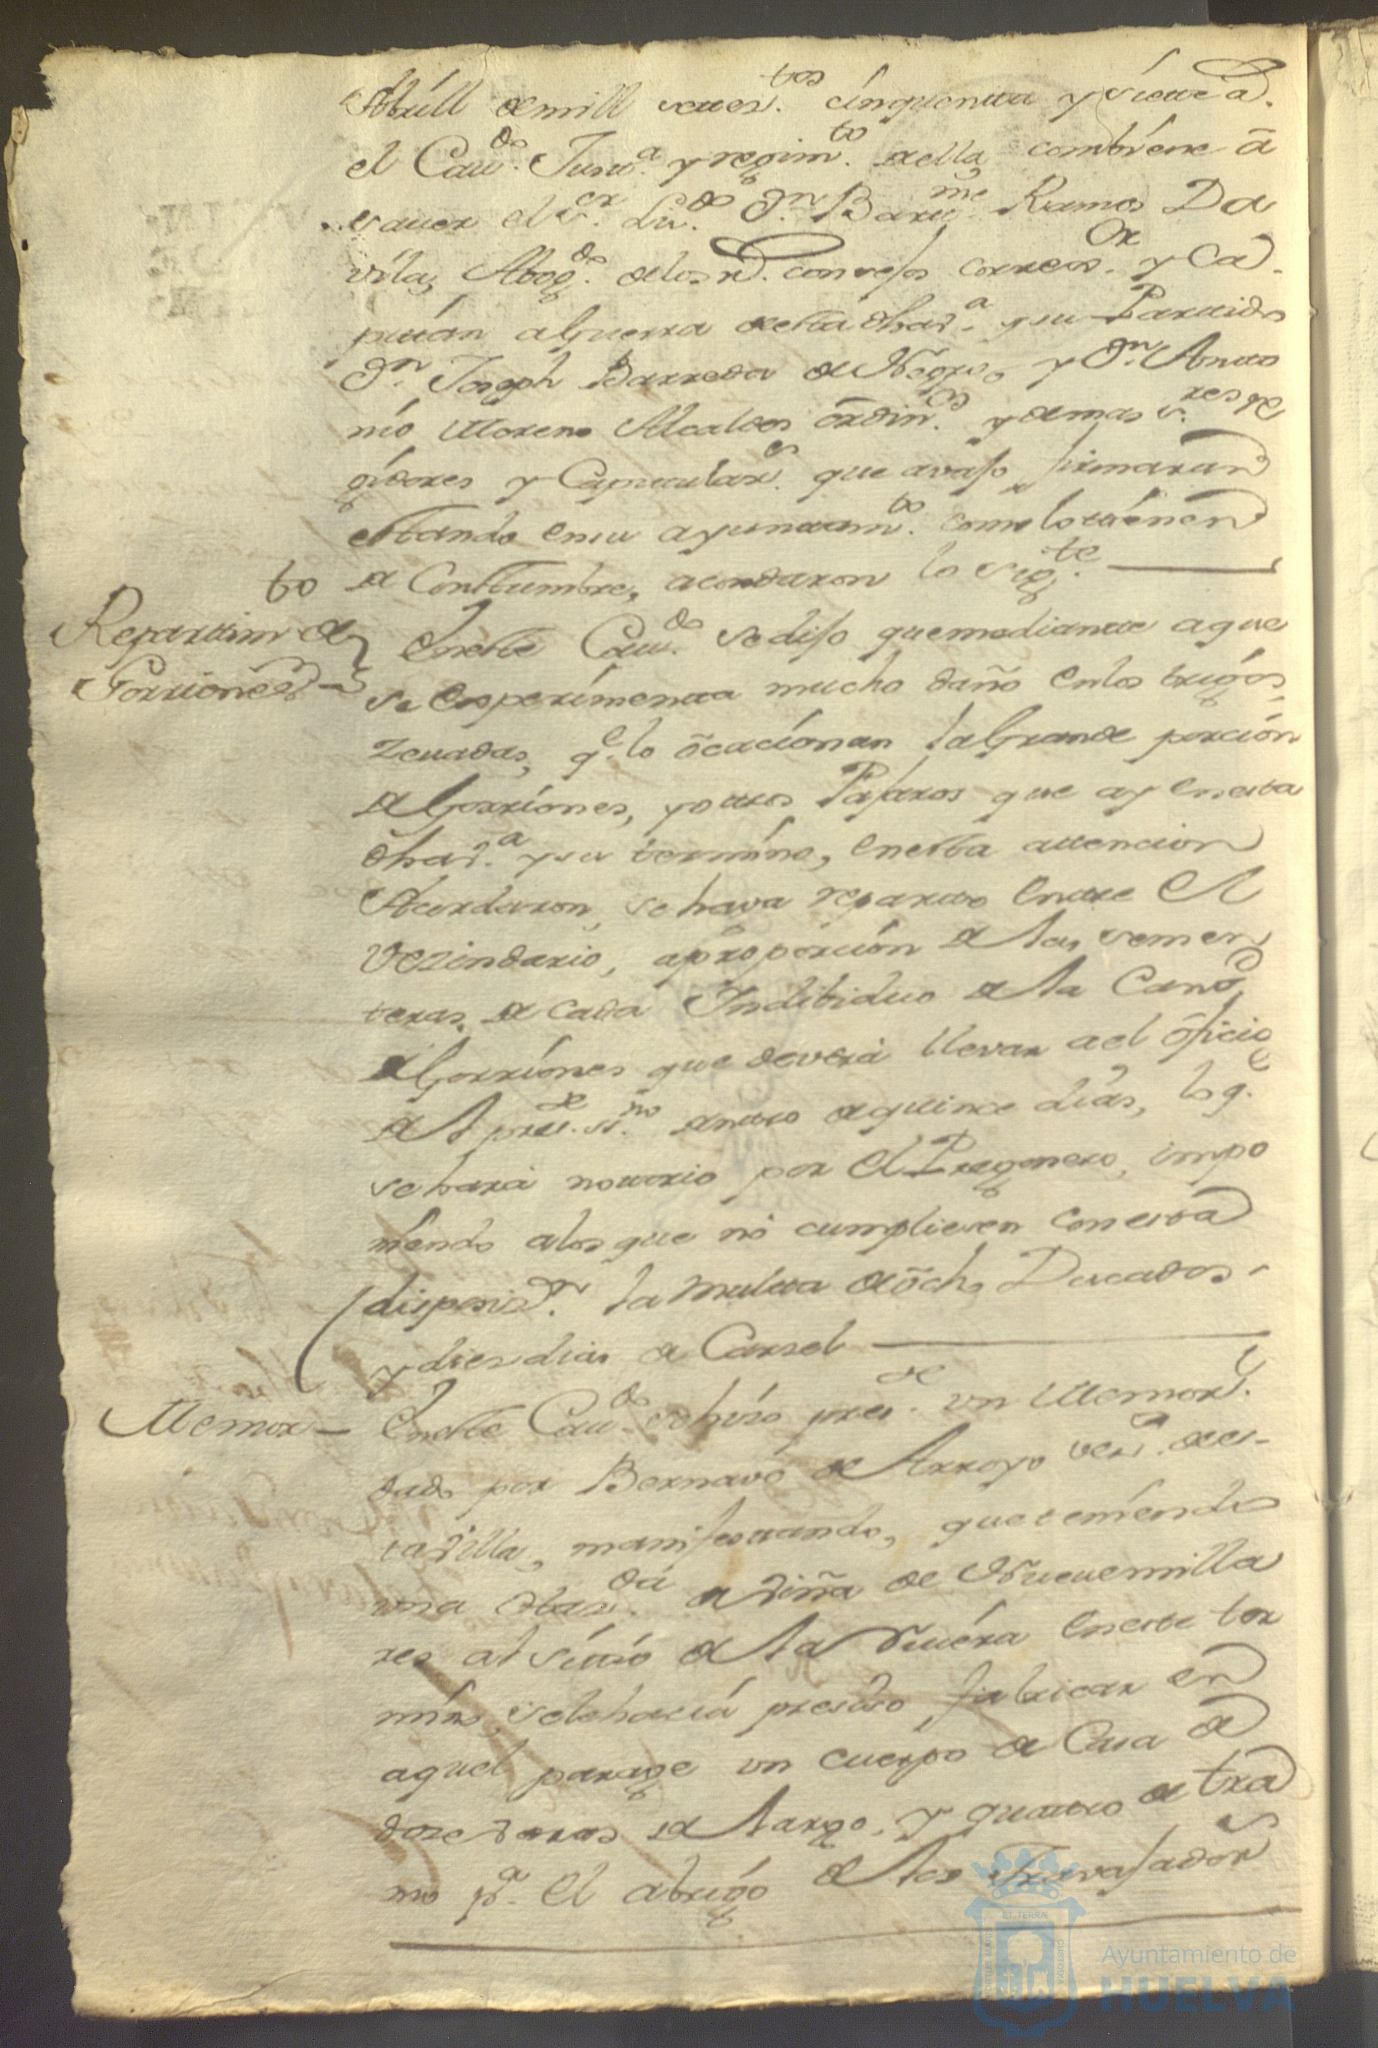 Abrill de mill setes.tos cinquenta y siete a.
el Cau.do Just.a y regim.to de ella combiene a
sauer el S.or Liz.do D.n Bartt.me Ramos Da
vila, Abog.do de los R. consejos correg.or y Ca-
pitan a Guerra de esta dha v.a y su Partido
D.n Joseph Barreda de Negro, y D.n Anto
nio Moreno Alcaldes ordin.os y demas S.res Re
gidores y Capitular.s que avajo firmaran
estando en su ayuntam.to como lo tienen
de Costtumbre, acordaron lo sig.te
Repartim.to de
Gorriones
En este Cau.do se dijo que mediante a que
se Esperimenta mucho daño en los trigos,
zeuadas, q.e lo ocacionan la Grande porcion
de Gorriones, y otros Pajaros que ay en esta
dha v.a y su termino, en esta attencion
Acordaron, se haga reparto entre el
Vezindario, a proporcion de las semen
teras de cada Indibiduo de la Cant.d
de Gorriones que devera llevar a el oficio
del pres.te ss.no dentro de quince dias, lo q.e
se hara notorio por el Pregonero, impo
niendo a los que no cumpliesen con esta
disposiz.n la multa de ocho Ducados
y diez dias de Carsel
Memor
En este Cau.do se hizo pres.te un Memor.l
dado por Bernave de Arroyo vez.o de es-
ta Villa, manifestando, que teniendo
una Haz.da de Viña de Nueuemilla
res al sitio de la Riuera en este ter
mino, se le hacia presiso fabricar en
aquel parage un cuerpo de Casa de
doze varas de largo, y quatro de tra
mo p.a el abrigo de los Travajadores
Ayuntamiento de
HUELVA